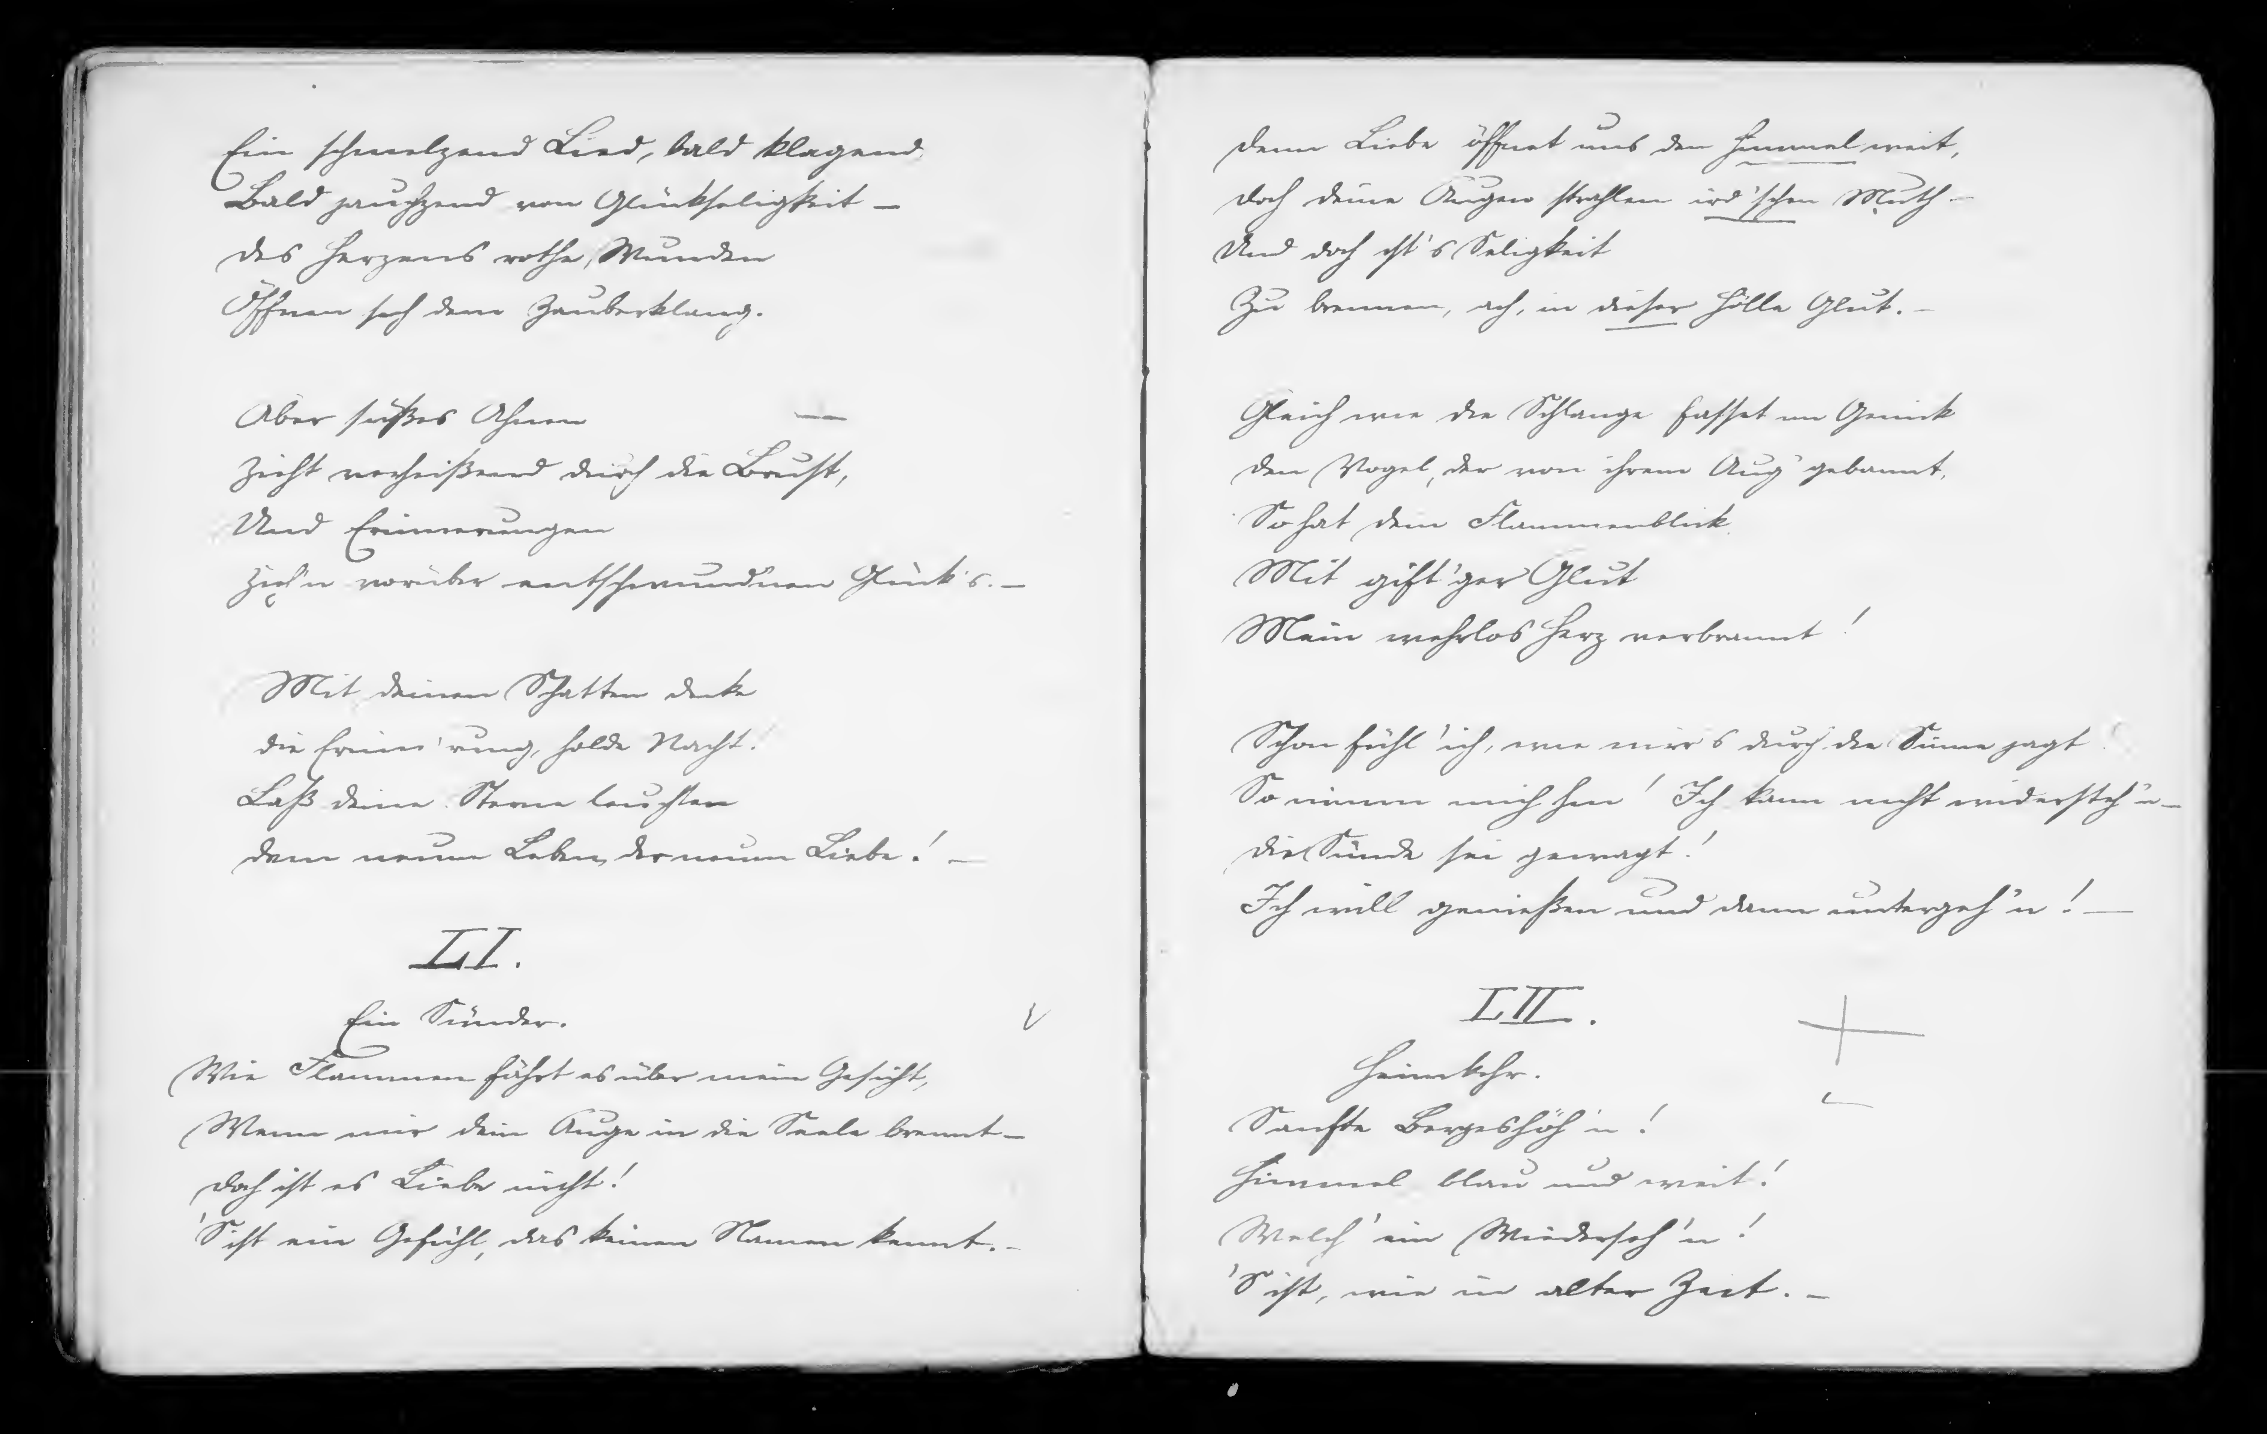 Ein schmelzend Lied, bald klagend,
Bald jauchzend von Glückseligkeit –
Des Herzens rothe Wunden
Öffnen sich dem Zauberklang.
Aber süßes Ahnen
Zieht verheißend durch die Brust,
Und Erinnerungen
Zieh'n vorüber entschwund'nen Glück's. –
Mit deinen Schatten decke
Die Erinn'rung, holde Nacht!
Laß deine Sterne leuchten
Dem neuen Leben, der neuen Liebe! –
LI.
Ein Sünder.
Wie Flammen fährt es über mein Gesicht,
Wenn mir dein Auge in die Seele brennt –
Doch ist es Liebe nicht!
'S ist ein Gefühl, das keinen Namen kennt. –
Denn Liebe öffnet uns den Himmel weit,
Doch deine Augen strahlen ird'schen Muth –
Und doch ist's Seligkeit
Zu brennen, ach, in dieser Hölle Glut. –
Gleich wie die Schlange fasset im Genick
Den Vogel, der von ihrem Aug' gebannt,
So hat dein Flammenblick
Mit gift'ger Glut
Mein wehrlos Herz verbrannt!
Schon fühl' ich, wie mir's durch die Sinne jagt!
So nimm mich hin! Ich kann nicht widersteh'n –
Die Sünde sei gewagt!
Ich will genießen und dann untergeh'n! –
LII.
Heimkehr.
Sanfte Bergeshöh'n!
Himmel blau und weit!
Welch' ein Wiederseh'n!
'S ist, wie in alter Zeit. –